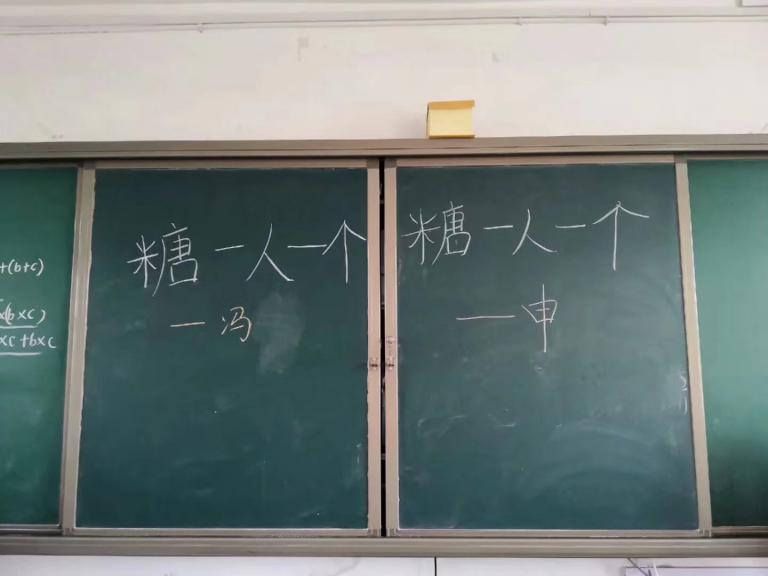 +(b+c)
×(b×c)
×c+b×c
糖一人一个
一冯
糖一人一个
一申